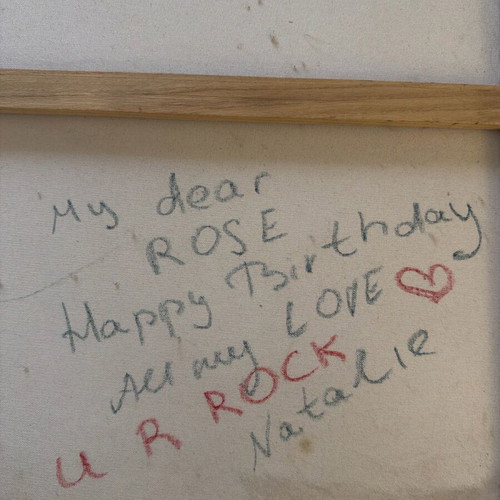 My dear
ROSE
Happy Birthday
All my LOVE
U R ROCK
Natalie